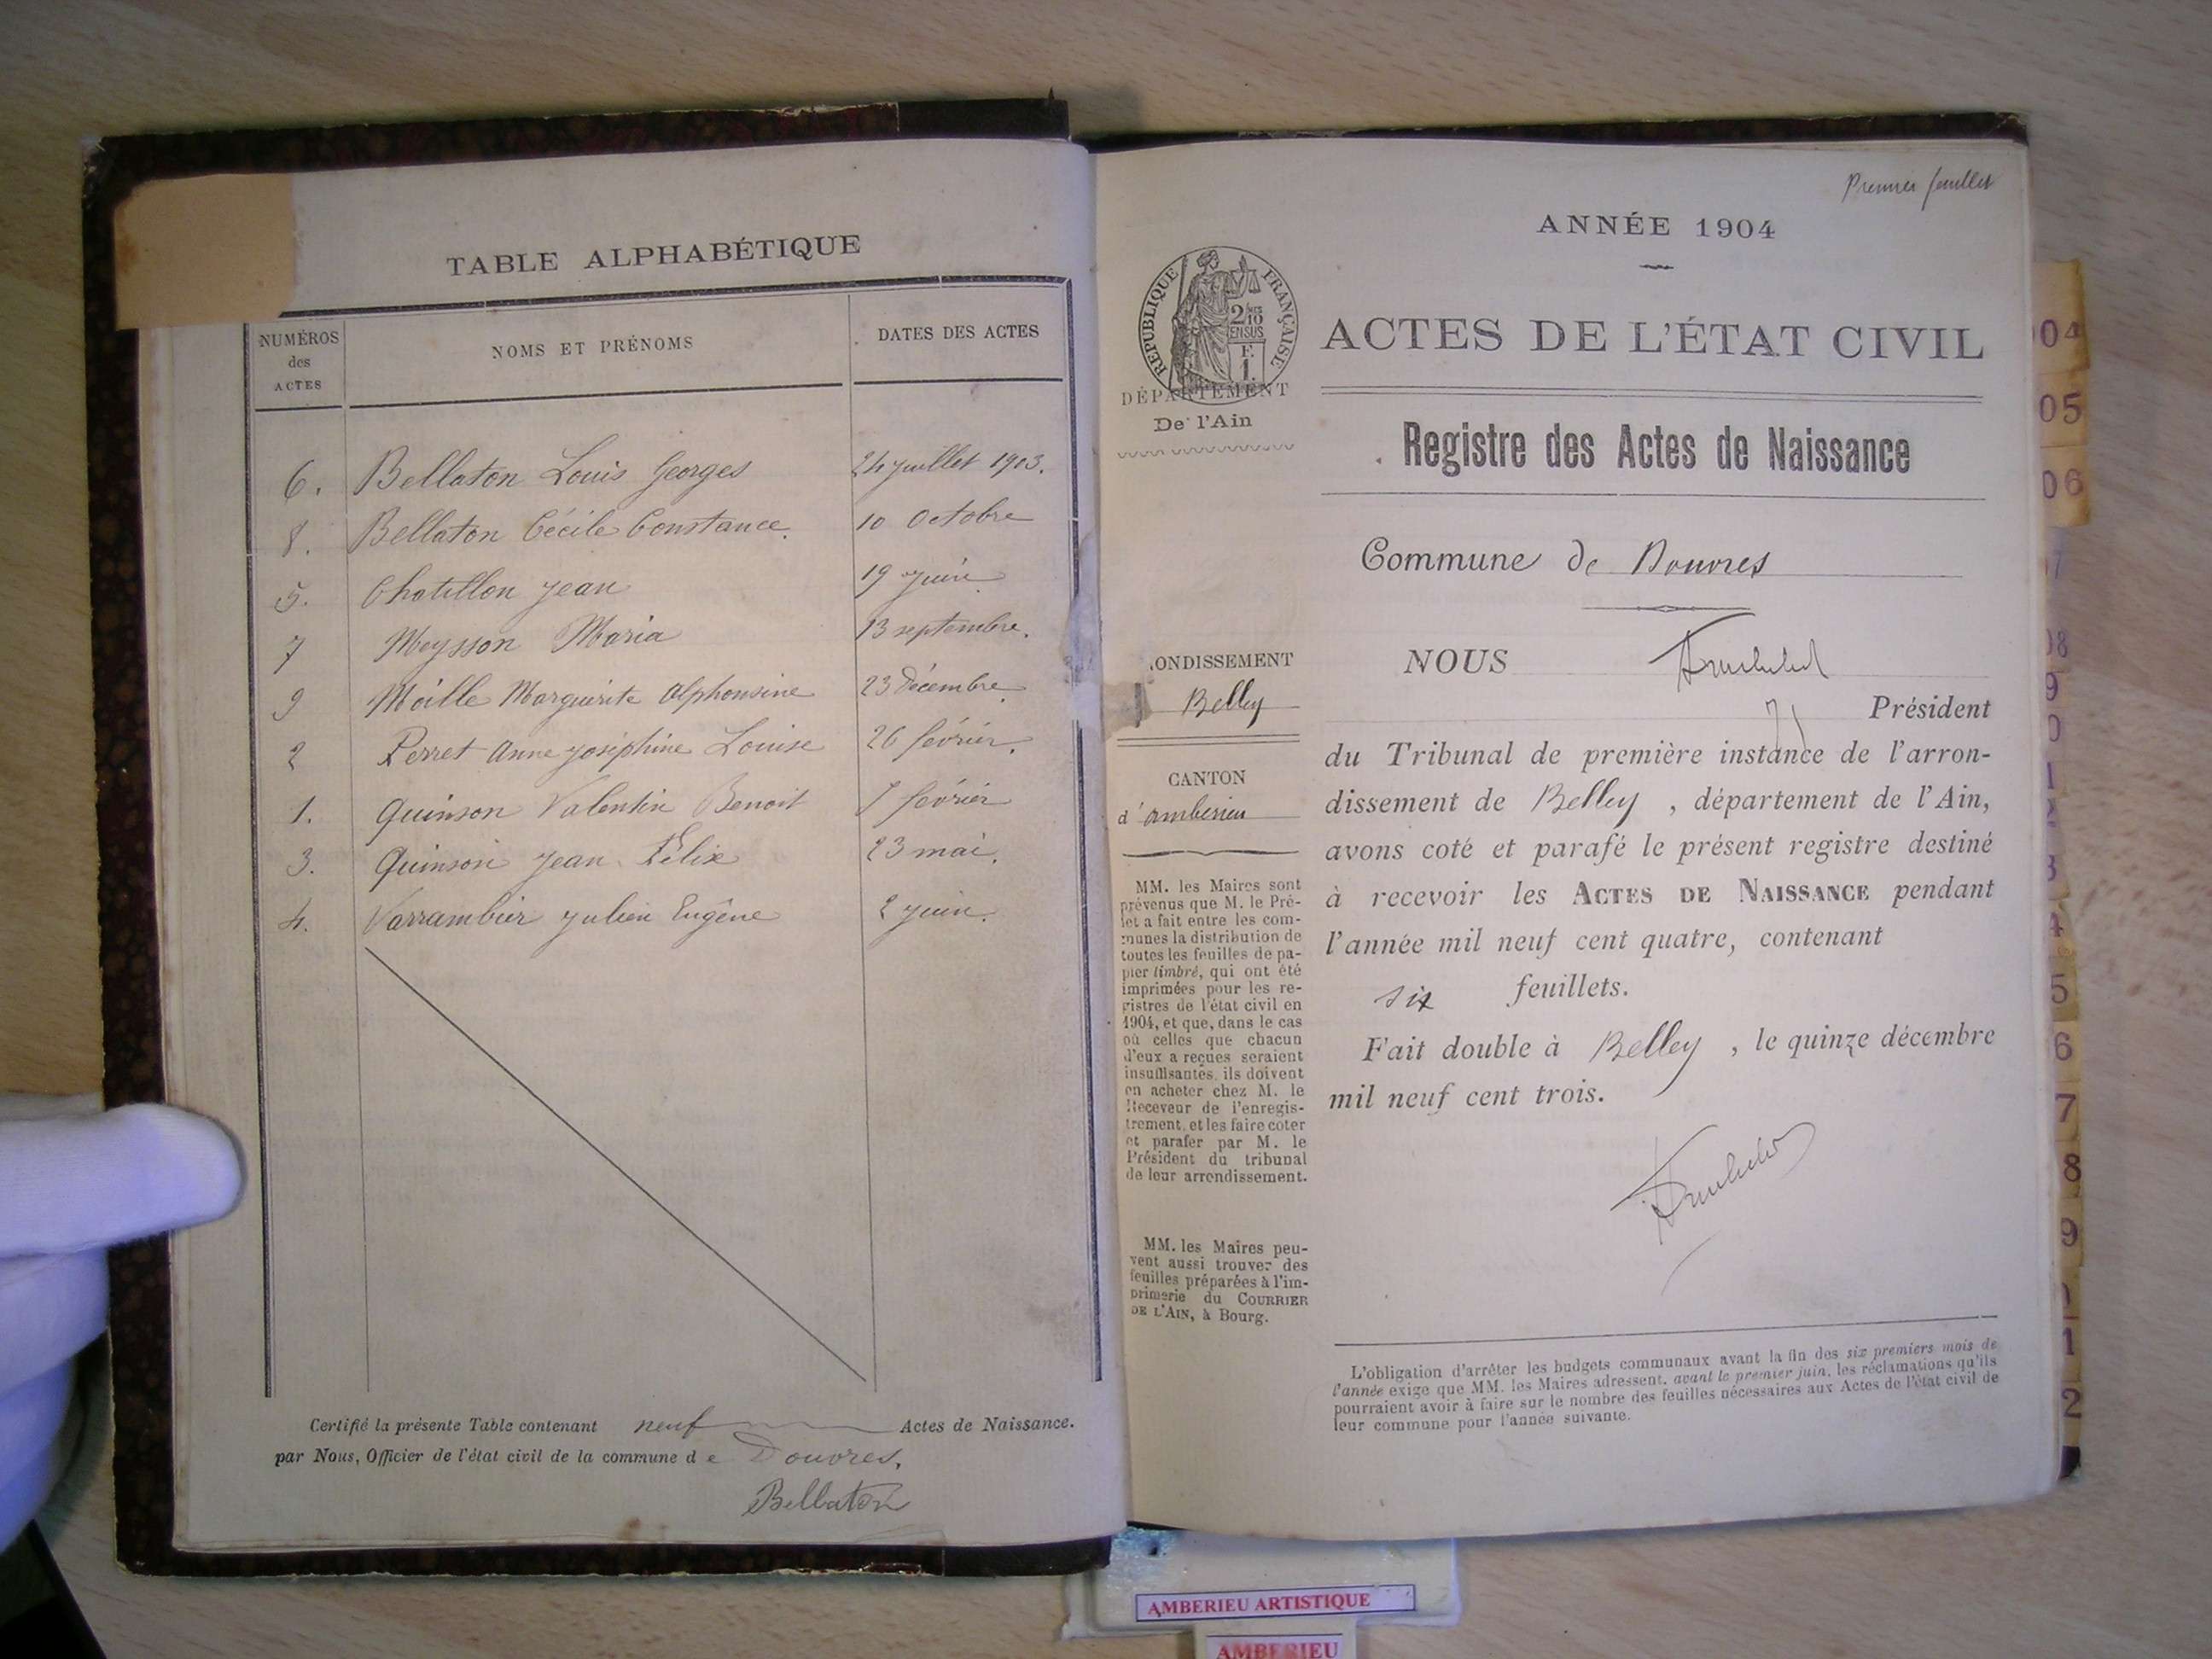 TABLE ALPHABÉTIQUE
NUMÉROS des ACTES
NOMS ET PRÉNOMS
DATES DES ACTES
6. Bellaton Louis Georges 24 juillet 1903.
8. Bellaton Cécile Constance. 10 Octobre
5. Chatillon Jean 19 juin
7 Meysson Maria 13 septembre.
9 Maille Marguerite Alphonsine 23 Décembre
2 Perret Anne Joséphine Louise 26 février.
1. Quinson Valentin Benoit février
3. Quinson Jean Félix 23 mai.
4. Varrambier Julien Eugène 2 juin.
Certifié la présente Table contenant neuf Actes de Naissance.
par Nous, Officier de l'état civil de la commune de Douvres.
Bellaton
Premier feuillet
ANNÉE 1904
RÉPUBLIQUE FRANÇAISE
2/10 EN SUS
F. 1.
DÉPARTEMENT
De l'Ain
ONDISSEMENT
Belley
CANTON
d'ambérieu
MM. les Maires sont
prévenus que M. le Pré-
fet a fait entre les com-
munes la distribution de
toutes les feuilles de pa-
pier timbré, qui ont été
imprimées pour les re-
gistres de l'état civil en
1904, et que, dans le cas
où celles que chacun
d'eux a reçues seraient
insuffisantes, ils doivent
en acheter chez M. le
Receveur de l'enregis-
trement, et les faire coter
et parafer par M. le
Président du tribunal
de leur arrondissement.
MM. les Maires peu-
vent aussi trouver des
feuilles préparées à l'im-
primerie du COURRIER
DE L'AIN, à Bourg.
ACTES DE L'ÉTAT CIVIL
Registre des Actes de Naissance
Commune de Douvres
NOUS
Président
du Tribunal de première instance de l'arron-
dissement de Belley, département de l'Ain,
avons coté et parafé le présent registre destiné
à recevoir les ACTES DE NAISSANCE pendant
l'année mil neuf cent quatre, contenant
six feuillets.
Fait double à Belley, le quinze décembre
mil neuf cent trois.
L'obligation d'arrêter les budgets communaux avant la fin des six premiers mois de
l'année exige que MM. les Maires adressent, avant le premier juin, les réclamations qu'ils
pourraient avoir à faire sur le nombre des feuilles nécessaires aux Actes de l'état civil de
leur commune pour l'année suivante.
04
05
06
7
08
9
0
1
2
3
4
5
6
7
8
9
1
2
AMBERIEU ARTISTIQUE
AMBERIEU